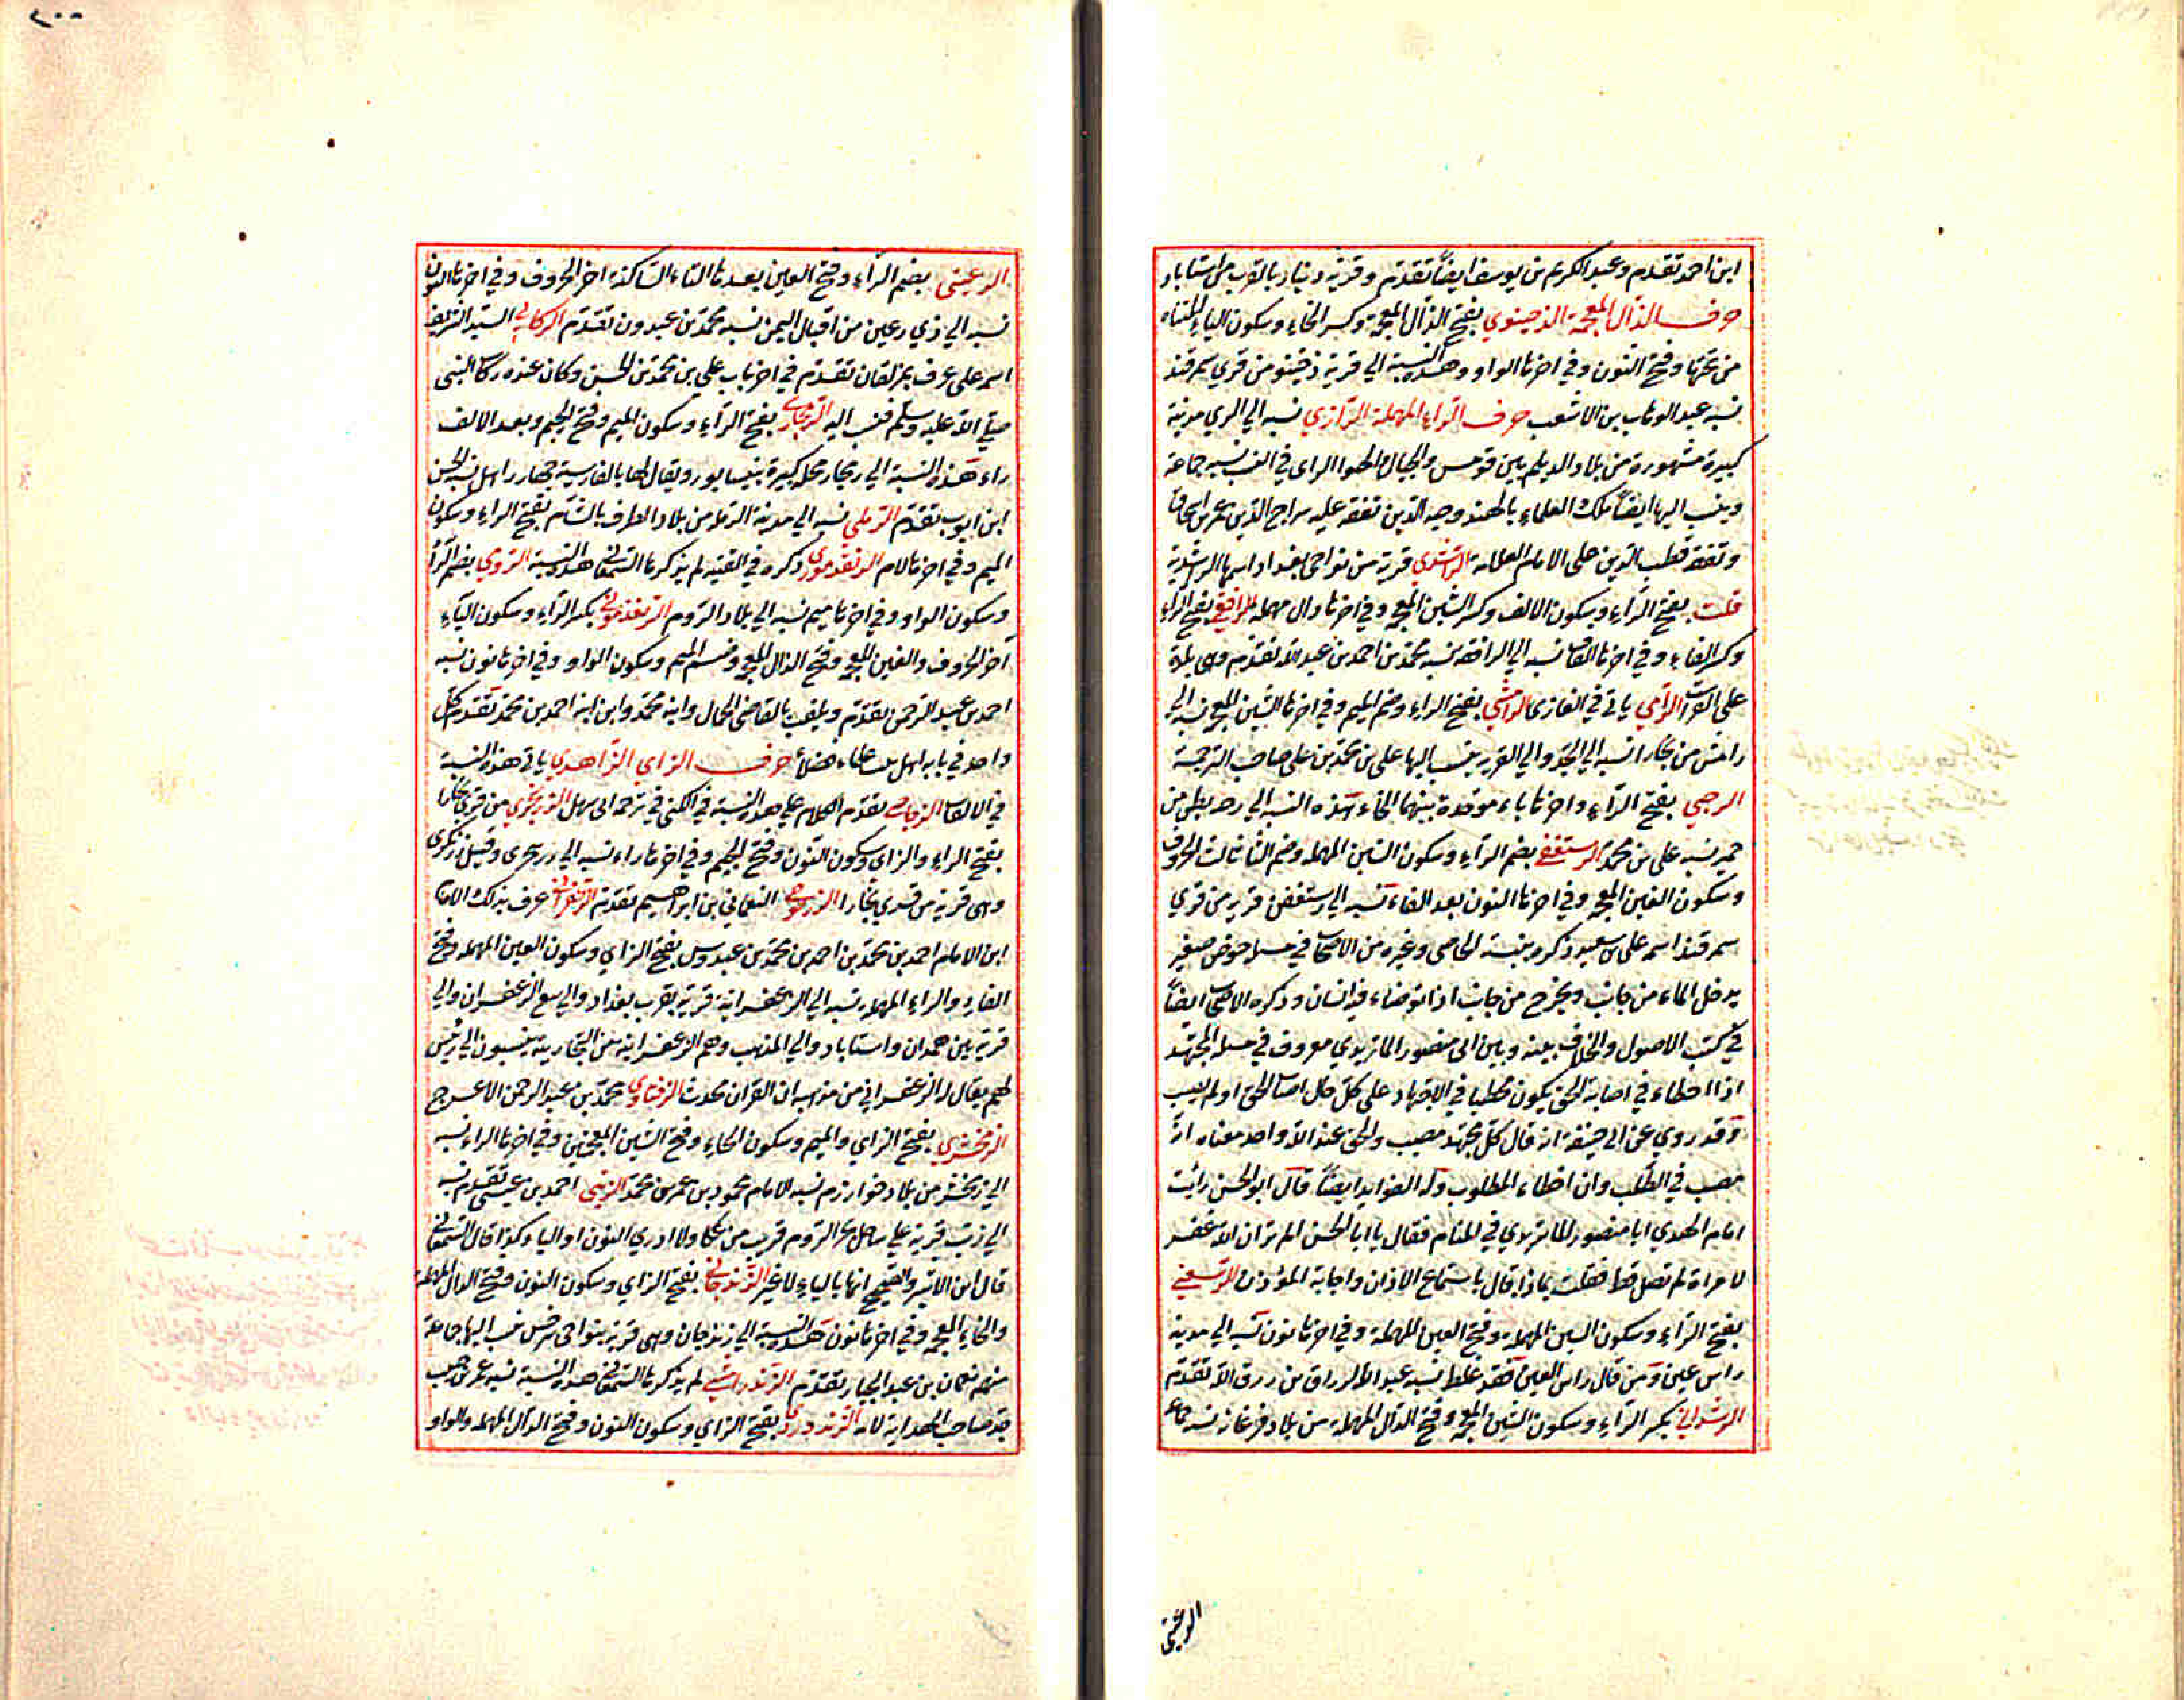 ابن احمد تقدم وعبد الكريم بن يوسف ايضاً تقدم وقرية دينار بالقرب من استاباد
حرف الذال المعجمة الذخينوي بفتح الذال المعجمة وكسر الخاء وسكون الياء المثناه
من تحتها وفتح النون وفي اخرها الواو وهذه النسبة الي قرية ذخينو من قري سمرقند
نسبه عبد الوهاب بن الاشعب حرف الراء المهملة الرازي نسبه الي الري مدينة
كبيرة مشهورة من بلاد الديلم بين قومس والجبال والحقوا الزاى في النسب نسبه جماعة
وينسب اليها ايضاً ملك العلماء بالهند وجيه الدين تفقه عليه سراج الدين عمر بن اسحاق
وتفقه قطب الدين على الامام العلامة الراشدي قرية من نواحى بغداد اسمها الراشدية
قلت بفتح الراء وسكون الالف وكسر الشين المعجمه وفي اخرها دال مهمله الرافقي بفتح الراء
وكسر الفاء وفي اخرها القاف نسبه الي الرافقه نسبه محمد بن احمد بن عبد الله تقدم وهى بلدة
على الفرات الرامي ياتي في الغازى الرامشي بفتح الراء وضم الميم وفي اخرها الشين المعجمه نسبه الي
رامش من بخارا نسبه الي الجد والي القرية ينسب اليها على بن محمد بن على صاحب الترجمة
الرحبي بفتح الراء واخرها باء موحدة بينهما الحاء هذه النسبه الي رحبه بطن من
حمير نسبه على بن محمد الرستغفني بضم الراء وسكون السين المهمله وضم التا ثالث الحروف
وسكون الغين المعجمه وفي اخرها النون بعد الفاء نسبه الي رستغفن قرية من قري
سمرقند اسمه على بن سعيد ذكره ... وغيره من الاصحاب في مسلة حوض صغير
يدخل الماء من جانب ويخرج من جانب اذا توضاء فيه انسان وذكره الاصحاب ايضاً
في كتب الاصول والخلاف بينه وبين ابى منصور الماتريدي معروف في مسلة المجتهد
اذا اخطاء في اصابة الحق يكون مخطيا في الاجتهاد على كل حال اصاب الحق او لم يصب
وقد روي عن ابي حنيفة انه قال كل مجتهد مصيب والحق عند الله واحد معناه انه
مصيب في الطلب وان اخطاء المطلوب وله الفوايد ايضاً قال ابو الحسن رأيت
امام الهدي ابا منصور الماتريدي في المنام فقال يا ابا الحسن الم تر ان الله غفر
لامراة لم تصل قط فقلت بماذا قال باستماع الاذان واجابة المؤذن الرسعني
بفتح الراء وسكون السين المهملة وفتح العين المهملة وفي اخرها نون نسبه الي مدينة
راس عين ومن قال راس العين فقد غلط نسبه عبد الرزاق بن رزق الله تقدم
الرشداني بكسر الراء وسكون الشين المعجمه وفتح الدال المهملة من بلاد فرغانه نسبه جماعه
الرعيني
٢٠٠
الرعينى بضم الراء وفتح العين بعدها التاء الساكنة اخر الحروف وفي اخرها النون
نسبه الي ذي رعين من اقيال اليمن نسبه محمد بن عبدون تقدم الركابي السيد الشريف
اسمه على عرف بمزلقان تقدم في اخر باب على بن محمد بن الحسن وكان عنده ركاب النبى
صلي الله عليه وسلم فنسب اليه الرمجاري بفتح الراء وسكون الميم وفتح الجيم وبعد الالف
راء هذه النسبة الي رمجار محله كبيرة بنيسابور ويقال لها بالفارسية جهار راهل نسبه الحسن
ابن ايوب تقدم الرملي نسبه الي مدينة الرملة من بلاد الطرف بالشام بفتح الراء وسكون
الميم وفي اخرها لام الرنقدموري ذكره في القنيه لم يذكرها السمعاني هذه النسبة الرومي بضم الراء
وسكون الواو وفي اخرها ميم نسبه الي بلاد الروم الريغذموني بكسر الراء وسكون الياء
آخر الحروف والغين المعجمه وفتح الذال المعجمه وضم الميم وسكون الواو وفي اخرها نون نسبه
احمد بن عبد الرحمن تقدم ويلقب بالقاضي الجمال وابنه محمد وابن ابنه احمد بن محمد تقدم كل
واحد في بابه اهل بيت علماء فضلاء حرف الزاي الزاهدي ياتي هذه النسبة
في الالقاب الزجاجي تقدم الكلام علي هذه النسبة في الكنى في ترجمة ابى سهل الزرنجري من قري بخارا
بفتح الراء والزاي وسكون النون وفتح الجيم وفي اخرها راء نسبه الي زرنجرى وقيل زرنكرى
وهى قرية من قري بخارا الزرنوجي النعماني بن ابراهيم تقدم الزعفراني عرف بذلك الامام
ابن الامام احمد بن محمد بن احمد بن محمد بن عبدوس بفتح الزاي وسكون العين المهمله وفتح
الفاء والراء المهمله نسبه الي الزعفرانية قرية بقرب بغداد والي بيع الزعفران والي
قرية بين همدان واستاباد والي المذهب وهم الزعفرانية من النجارية ينسبون الي رئيس
لهم يقال له الزعفراني من مذهبه ان القرآن محدث الزفتاوي محمد بن عبد الرحمن الاعرج
الزمخشري بفتح الزاي والميم وسكون الخاء وفتح الشين المعجمتين وفي اخرها الراء نسبه
الي زمخشر من بلاد خوارزم نسبه الامام محمود بن عمر بن محمد الزينبي احمد بن عيسى تقدم نسبه
الي زيب قرية علي ساحل بحر الروم قريب من عكا ولا ادري النون او الياء وكذا قال السمعاني
قال ابن الاثير والصحيح انها بالياء لا غير الزندخاني بفتح الزاي وسكون النون وفتح الدال المهملة
والخاء المعجمه وفي اخرها نون هذه النسبة الي زندخان وهى قرية بنواحى سرخس نسب اليها جماعة
منهم نعمان بن عبد الجبار تقدم الزندرامشي لم يذكرها السمعاني هذه النسبة نسبه عمر بن حبيب
جد صاحب الهداية لامه الزندوردي بفتح الزاي وسكون النون وفتح الدال المهمله والواو